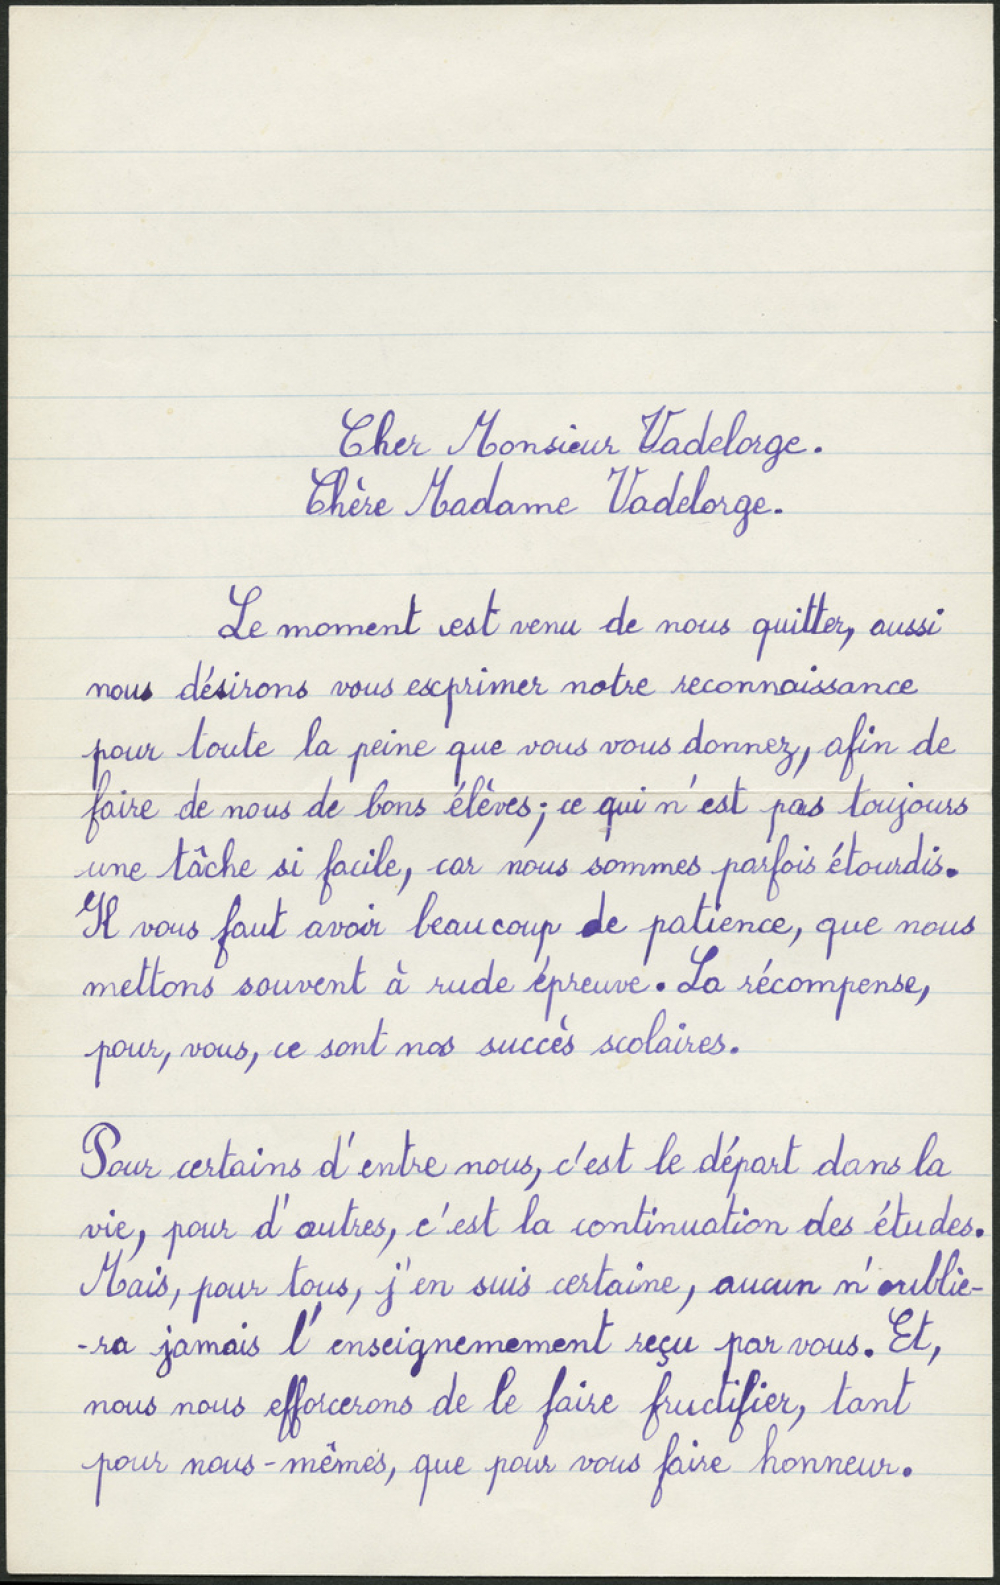 Cher Monsieur Vadelorge.
Chère Madame Vadelorge.
Le moment est venu de nous quitter, aussi
nous désirons vous exprimer notre reconnaissance
pour toute la peine que vous vous donnez, afin de
faire de nous de bons élèves; ce qui n'est pas toujours
une tâche si facile, car nous sommes parfois étourdis.
Il vous faut avoir beaucoup de patience, que nous
mettons souvent à rude épreuve. La récompense,
pour, vous, ce sont nos succès scolaires.
Pour certains d'entre nous, c'est le départ dans la
vie, pour d'autres, c'est la continuation des études.
Mais, pour tous, j'en suis certaine, aucun n'oublie-
-ra jamais l'enseignemement reçu par vous. Et,
nous nous efforcerons de le faire fructifier, tant
pour nous-mêmes, que pour vous faire honneur.